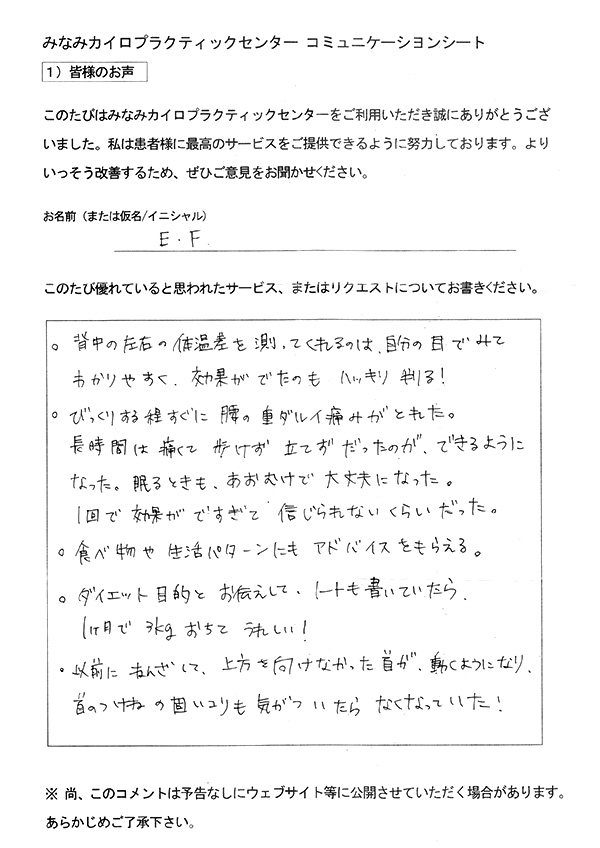 みなみカイロプラクティックセンター コミュニケーションシート
1）皆様のお声
このたびはみなみカイロプラクティックセンターをご利用いただき誠にありがとうござ
いました。私は患者様に最高のサービスをご提供できるように努力しております。より
いっそう改善するため、ぜひご意見をお聞かせください。
お名前（または仮名/イニシャル）
E.F.
このたび優れていると思われたサービス、またはリクエストについてお書きください。
○ 背中の左右の体温差を測ってくれるのは、自分の目でみて
わかりやすく、効果がでたのも ハッキリ判る！
○ びっくりする程すぐに腰の重ダルイ痛みがとれた。
長時間は痛くて歩けず立てずだったのが、できるように
なった。眠るときも、あおむけで大丈夫になった。
1回で効果がですぎて信じられないくらいだった。
○ 食べ物や生活パターンにもアドバイスをもらえる。
○ ダイエット目的とお伝えして、ノートも書いていたら、
1ヶ月で3kgおちてうれしい！
・以前にねんざして、上方を向けなかった首が、動くようになり、
首のつけねの固いコリも気がついたらなくなっていた！
※ 尚、このコメントは予告なしにウェブサイト等に公開させていただく場合があります。
あらかじめご了承下さい。